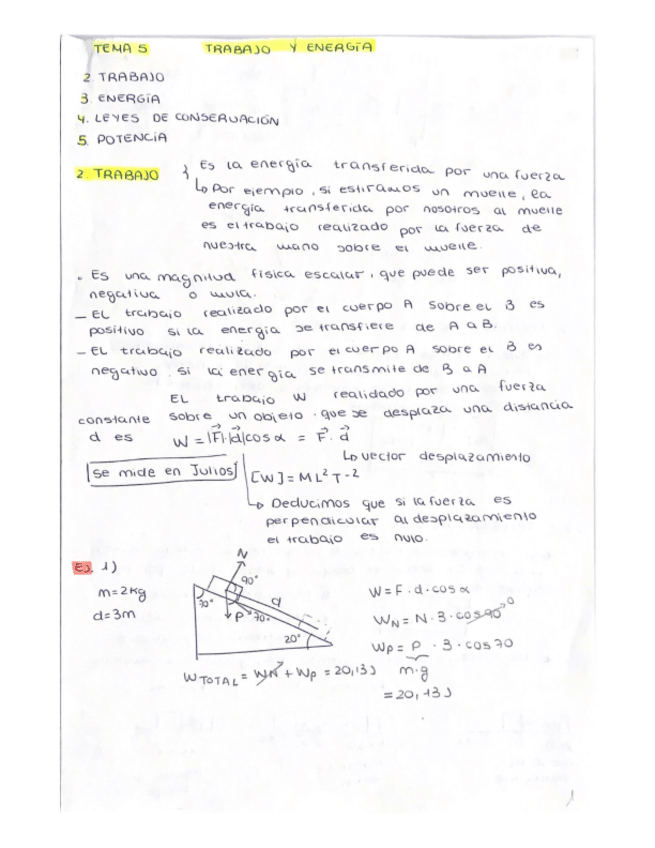 TEMA 5 TRABAJO Y ENERGÍA
2 TRABAJO
3. ENERGÍA
4. LEYES DE CONSERVACIÓN
5. POTENCIA
2. TRABAJO } Es la energía transferida por una fuerza
↳ Por ejemplo, si estiramos un muelle, la
energía transferida por nosotros al muelle
es el trabajo realizado por la fuerza de
nuestra mano sobre el muelle.
- Es una magnitud física escalar, que puede ser positiva,
negativa o nula.
- El trabajo realizado por el cuerpo A sobre el B es
positivo si la energía se transfiere de A a B.
- El trabajo realizado por el cuerpo A sobre el B es
negativo. si la energía se transmite de B a A
El trabajo W realidado por una fuerza
constante sobre un objeto. que se desplaza una distancia
d es W = |F⃗|·|d⃗|cos α = F⃗ · d⃗
↳ vector desplazamiento
Se mide en Julios [W] = ML²T-2
↳ Deducimos que si la fuerza es
perpendicular al desplazamiento
el trabajo es nulo.
Ej. 1)
m=2kg
d=3m
N
90°
70°
d
P
70°
20°
W = F · d · cos α
WN = N · 3 · cos 90 0
WP = P · 3 · cos 70
m·g
= 20,13J
WTOTAL = WN + WP = 20,13J
1